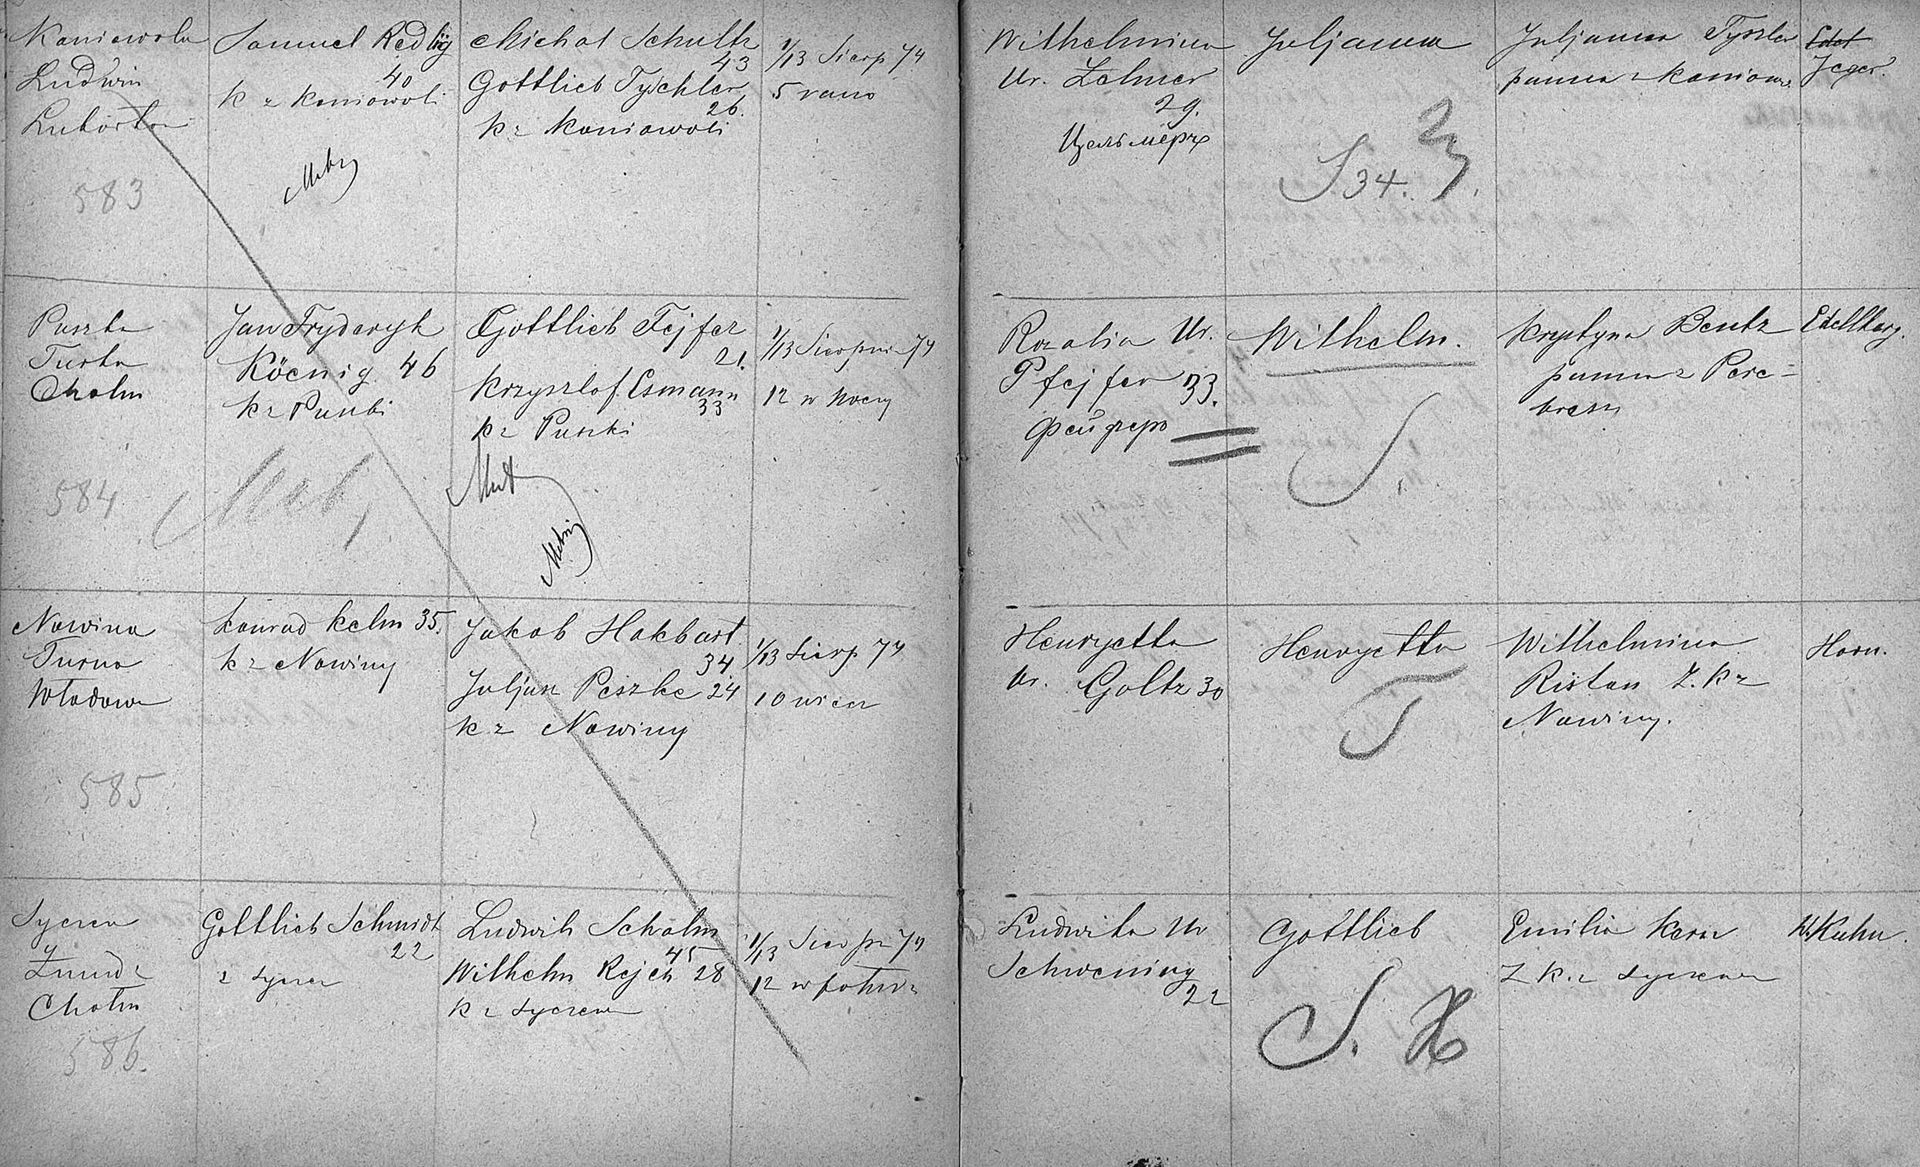 Kaniowola
Ludwin
Lubarta
583
Samuel Redlig
40
k z Kaniowoli
Michal Schultz
43
Gottlieb Tyschler
26.
k z Kaniowoli
1/13 Sierp 74
5 rano
Wilhelmina
Ur. Zelmer
29.
Цельмеръ
Juljanna
S 34.
Juljanna Tyszler
panna z Kaniow.
Jeger.
Puszka
Turka
Chołm
584
Jan Fryderyk
Köenig 46
k z Puszki
Gottlieb Fejfer
21.
Krzysztof Esmann
33
k z Puszki
1/13 Sierpnia 74
12 w Nocy
Rozalia Ur.
Pfejfer 33.
Фейферъ
Wilhelm.
S.
Krystyna Bentz
panna z Pere-
Edelberg.
Nowina
Turna
Włodawa
585
Konrad Kelm 35.
k z Nowiny
Jakob Hakbart
34
Juljan Peszke 24
k z Nowiny
1/13 Sierp 74
10 wiecz
Henryetta
Ur. Goltz 30
Henryetta
T
Wilhelmina
Ristau Z. k z
Nowiny.
Horn.
Syczew
Żmudz
Chołm
586.
Gottlieb Schmidt
22
z Syczew
Ludwik Schalm
45
Wilhelm Rejch 28
k z Syczewa
1/13 Sierpn 74
12 w połud.
Ludwika Ur
Schwening
22
Gottlieb
S.
Emilia Kern
Z k. z Syczewa
W. Kuhn.